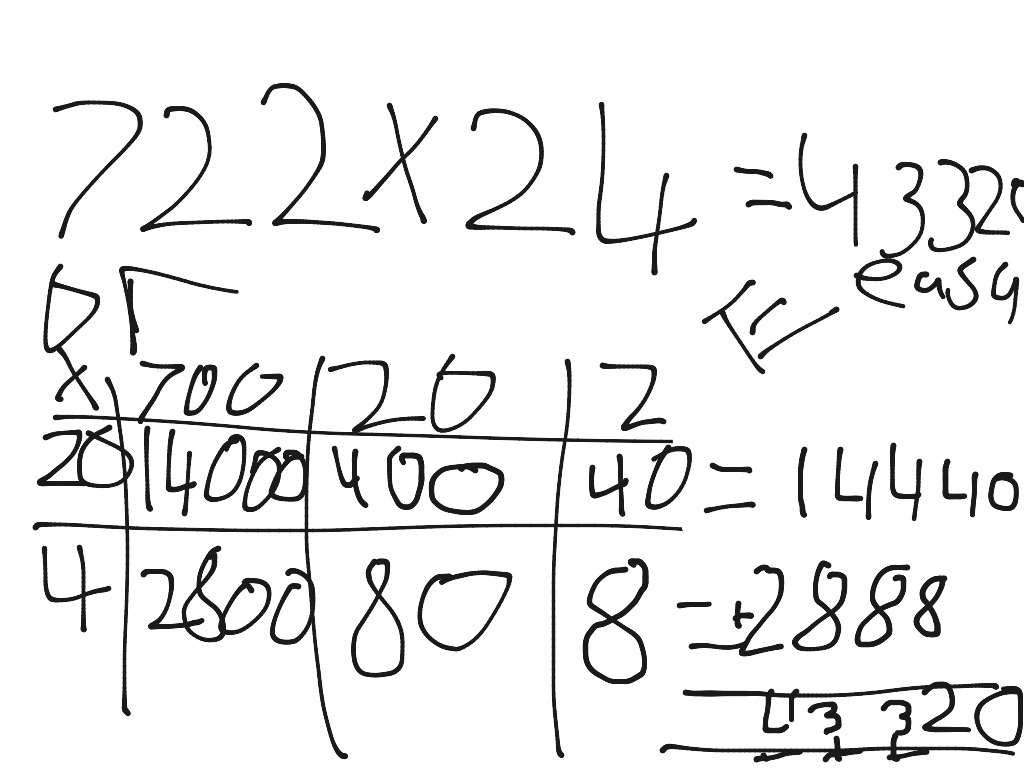 722×24 =43320
easy
× 700 20 2
20 14000 400 40 = 14440
4 2800 80 8 = +2888
43320